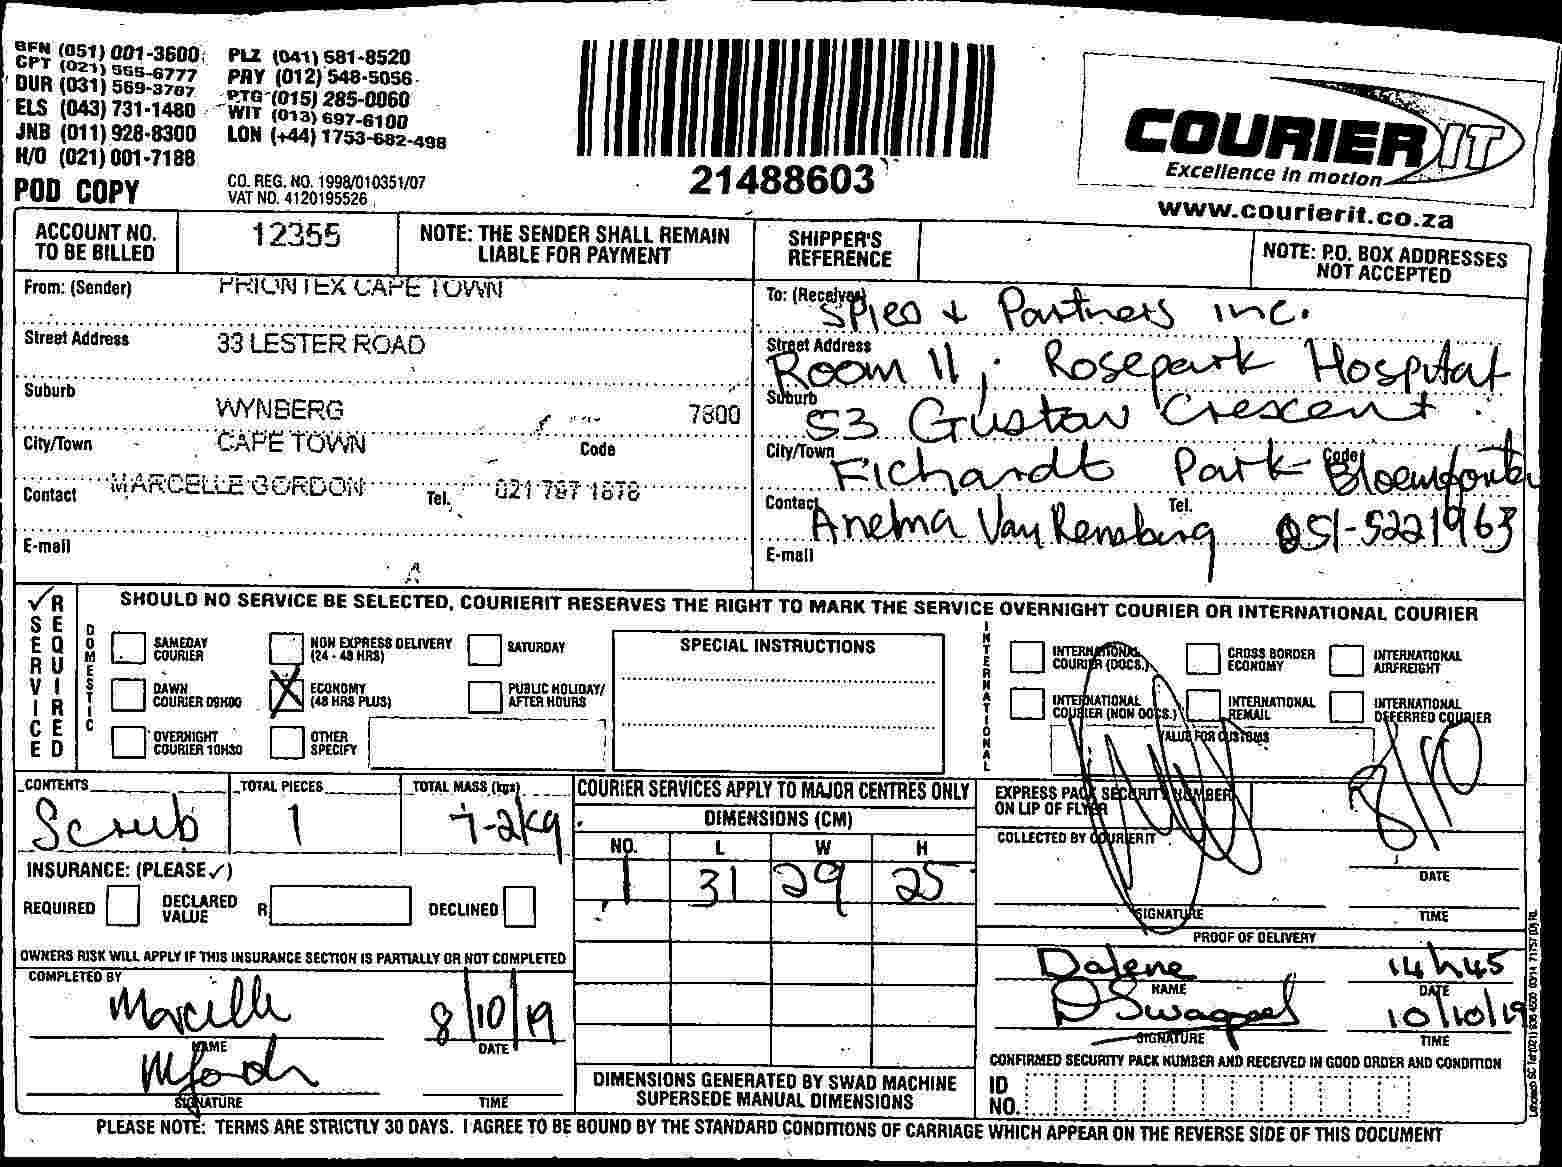 BFN (051) 001-3600 PLZ (041) 581-8520
CPT (021) 555-6777 PRY (012) 548-5056
DUR (031) 569-3787 PTG (015) 285-0060
ELS (043) 731-1480 WIT (013) 697-6100
JNB (011) 928-8300 LON (+44) 1753-682-498
H/O (021) 001-7188
POD COPY
CO. REG. NO. 1998/010351/07
VAT NO. 4120195526
21488603
COURIER IT
Excellence in motion
www.courierit.co.za
ACCOUNT NO. TO BE BILLED 12355
NOTE: THE SENDER SHALL REMAIN LIABLE FOR PAYMENT
SHIPPER'S REFERENCE
NOTE: P.O. BOX ADDRESSES NOT ACCEPTED
From: (Sender) PRIONTEX CAPE TOWN
Street Address 33 LESTER ROAD
Suburb WYNBERG 7800
City/Town CAPE TOWN Code
Contact MARCELLE GORDON Tel. 021 797 1678
E-mail
To: (Receiver) Spies + Partners inc.
Street Address Room 11, Rosepark Hospital
Suburb 53 Gustav Crescent
City/Town Fichardt Park Code Bloemfontein
Contact Anelma Van Rensburg Tel. 051-5221963
E-mail
✓ SERVICE REQUIRED
SHOULD NO SERVICE BE SELECTED, COURIERIT RESERVES THE RIGHT TO MARK THE SERVICE OVERNIGHT COURIER OR INTERNATIONAL COURIER
DOMESTIC
SAMEDAY COURIER
NON EXPRESS DELIVERY (24 - 48 HRS)
SATURDAY
DAWN COURIER 09H00
X ECONOMY (48 HRS PLUS)
PUBLIC HOLIDAY/ AFTER HOURS
OVERNIGHT COURIER 10H30
OTHER SPECIFY
SPECIAL INSTRUCTIONS
INTERNATIONAL
INTERNATIONAL COURIER (DOCS.)
CROSS BORDER ECONOMY
INTERNATIONAL AIRFREIGHT
INTERNATIONAL COURIER (NON DOCS.)
INTERNATIONAL REMAIL
INTERNATIONAL DEFERRED COURIER
VALUE FOR CUSTOMS
CONTENTS Scrub
TOTAL PIECES 1
TOTAL MASS (kgs) 7-2kg
INSURANCE: (PLEASE ✓)
REQUIRED DECLARED VALUE R DECLINED
OWNERS RISK WILL APPLY IF THIS INSURANCE SECTION IS PARTIALLY OR NOT COMPLETED
COMPLETED BY
Marcelle 8/10/19
NAME DATE
SIGNATURE TIME
COURIER SERVICES APPLY TO MAJOR CENTRES ONLY
DIMENSIONS (CM)
NO. L W H
1 31 29 25
DIMENSIONS GENERATED BY SWAD MACHINE SUPERSEDE MANUAL DIMENSIONS
EXPRESS PACK SECURITY NUMBER ON LIP OF FLYER
COLLECTED BY COURIERIT 8/10
DATE
SIGNATURE TIME
PROOF OF DELIVERY
Dalene 14h45
NAME DATE
D Swagpoel 10/10/19
SIGNATURE TIME
CONFIRMED SECURITY PACK NUMBER AND RECEIVED IN GOOD ORDER AND CONDITION
ID NO.
PLEASE NOTE: TERMS ARE STRICTLY 30 DAYS. I AGREE TO BE BOUND BY THE STANDARD CONDITIONS OF CARRIAGE WHICH APPEAR ON THE REVERSE SIDE OF THIS DOCUMENT